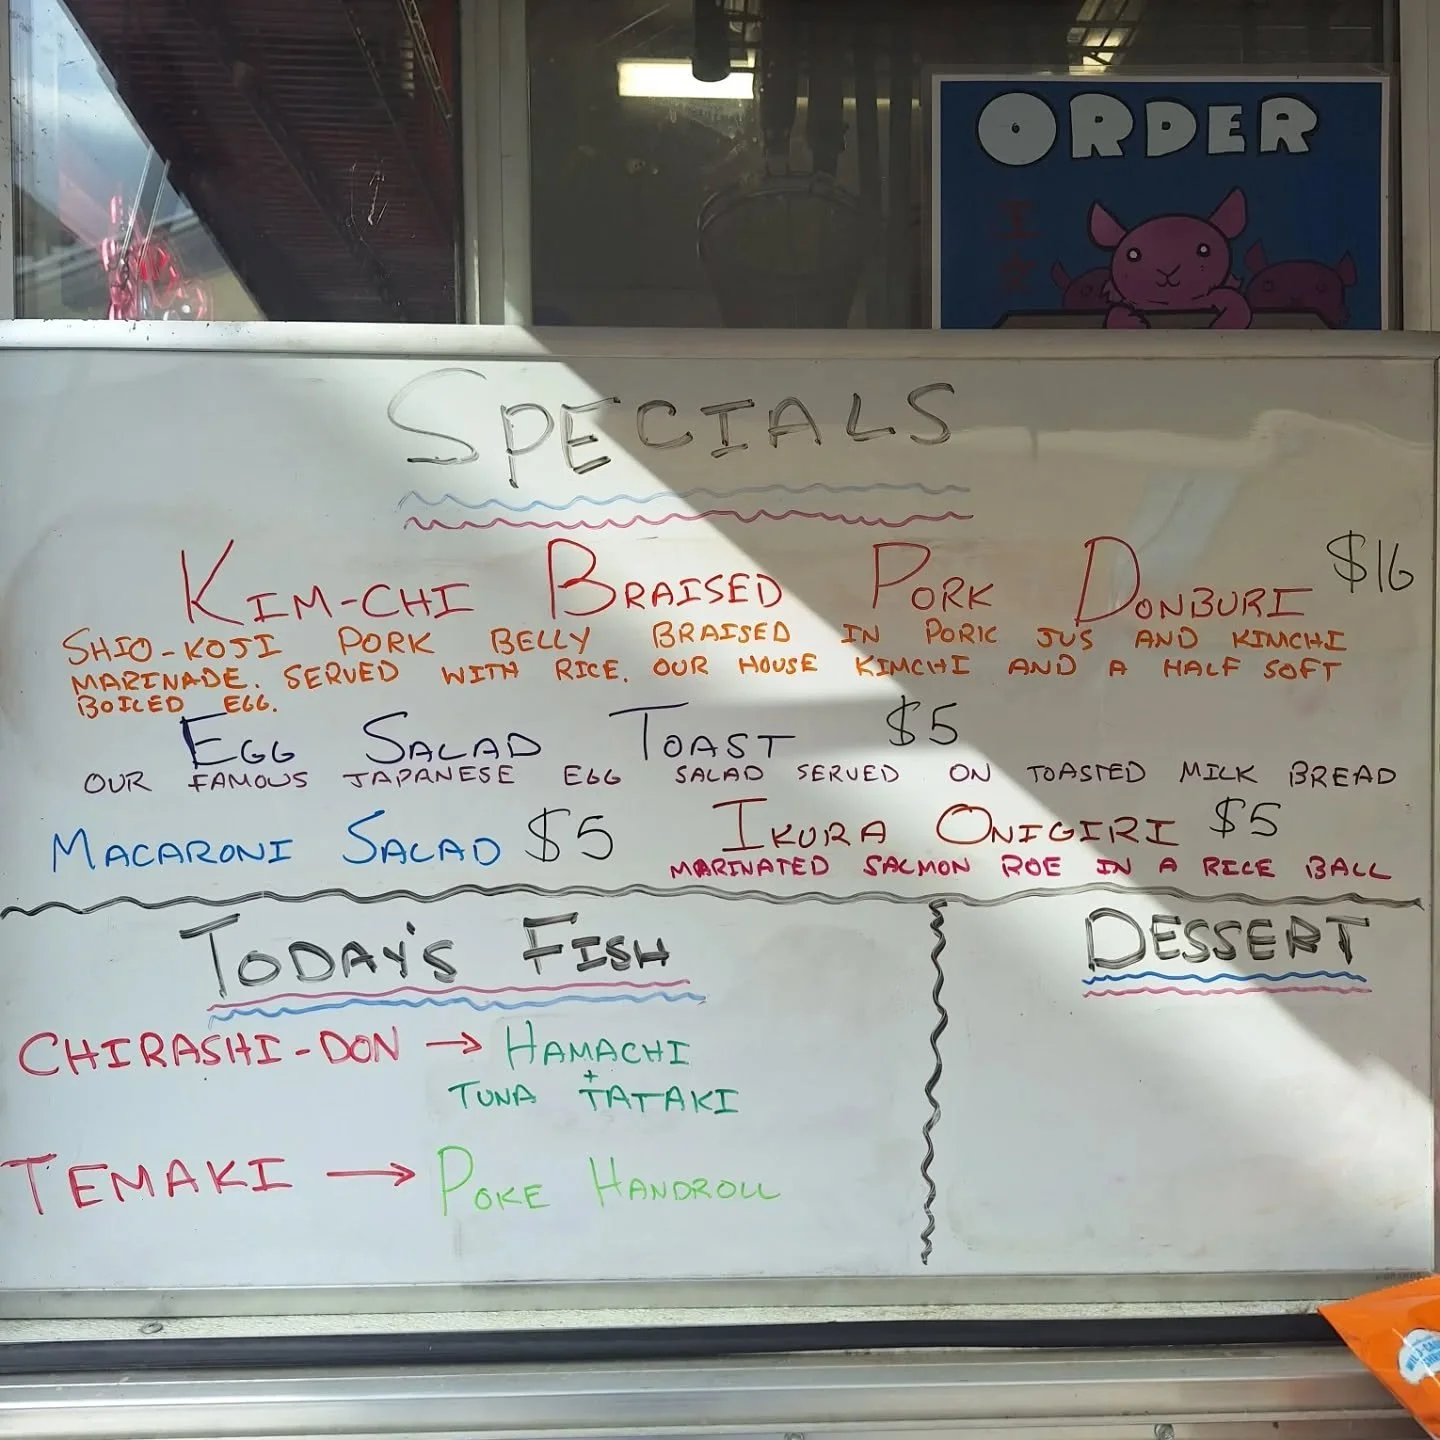 ORDER
SPECIALS
KIM-CHI BRAISED PORK DONBURI $16
SHIO-KOJI PORK BELLY BRAISED IN PORK JUS AND KIMCHI
MARINADE. SERVED WITH RICE, OUR HOUSE KIMCHI AND A HALF SOFT
BOILED EGG.
EGG SALAD TOAST $5
OUR FAMOUS JAPANESE EGG SALAD SERVED ON TOASTED MILK BREAD
MACARONI SALAD $5
IKURA ONIGIRI $5
MARINATED SALMON ROE IN A RICE BALL
TODAY'S FISH
CHIRASHI-DON → HAMACHI
+
TUNA TATAKI
TEMAKI → POKE HANDROLL
DESSERT